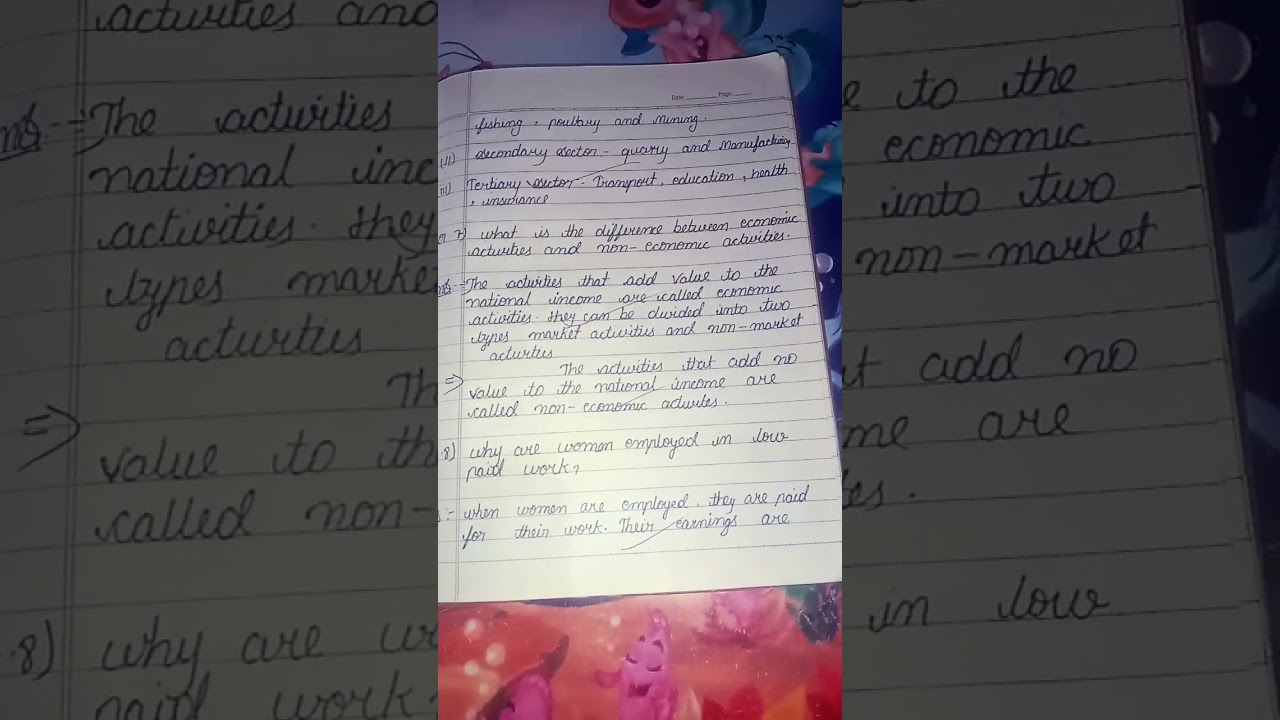 Date Page
fishing, poultary and mining.
(II) secondary sector - quary and Manufacturing
III) Tertiary sector - Transport, education, health
, insurance
Q. 7) what is the difference between economic
activities and non-economic activities.
Ans :- The activities that add value to the
national income are called economic
activities. they can be divided into two
types market activities and non-market
activities
The activities that add no
=> value to the national income are
called non-economic activites.
.8) why are women employed in low
paid work?
:- when women are employed, they are paid
for their work. Their earnings are